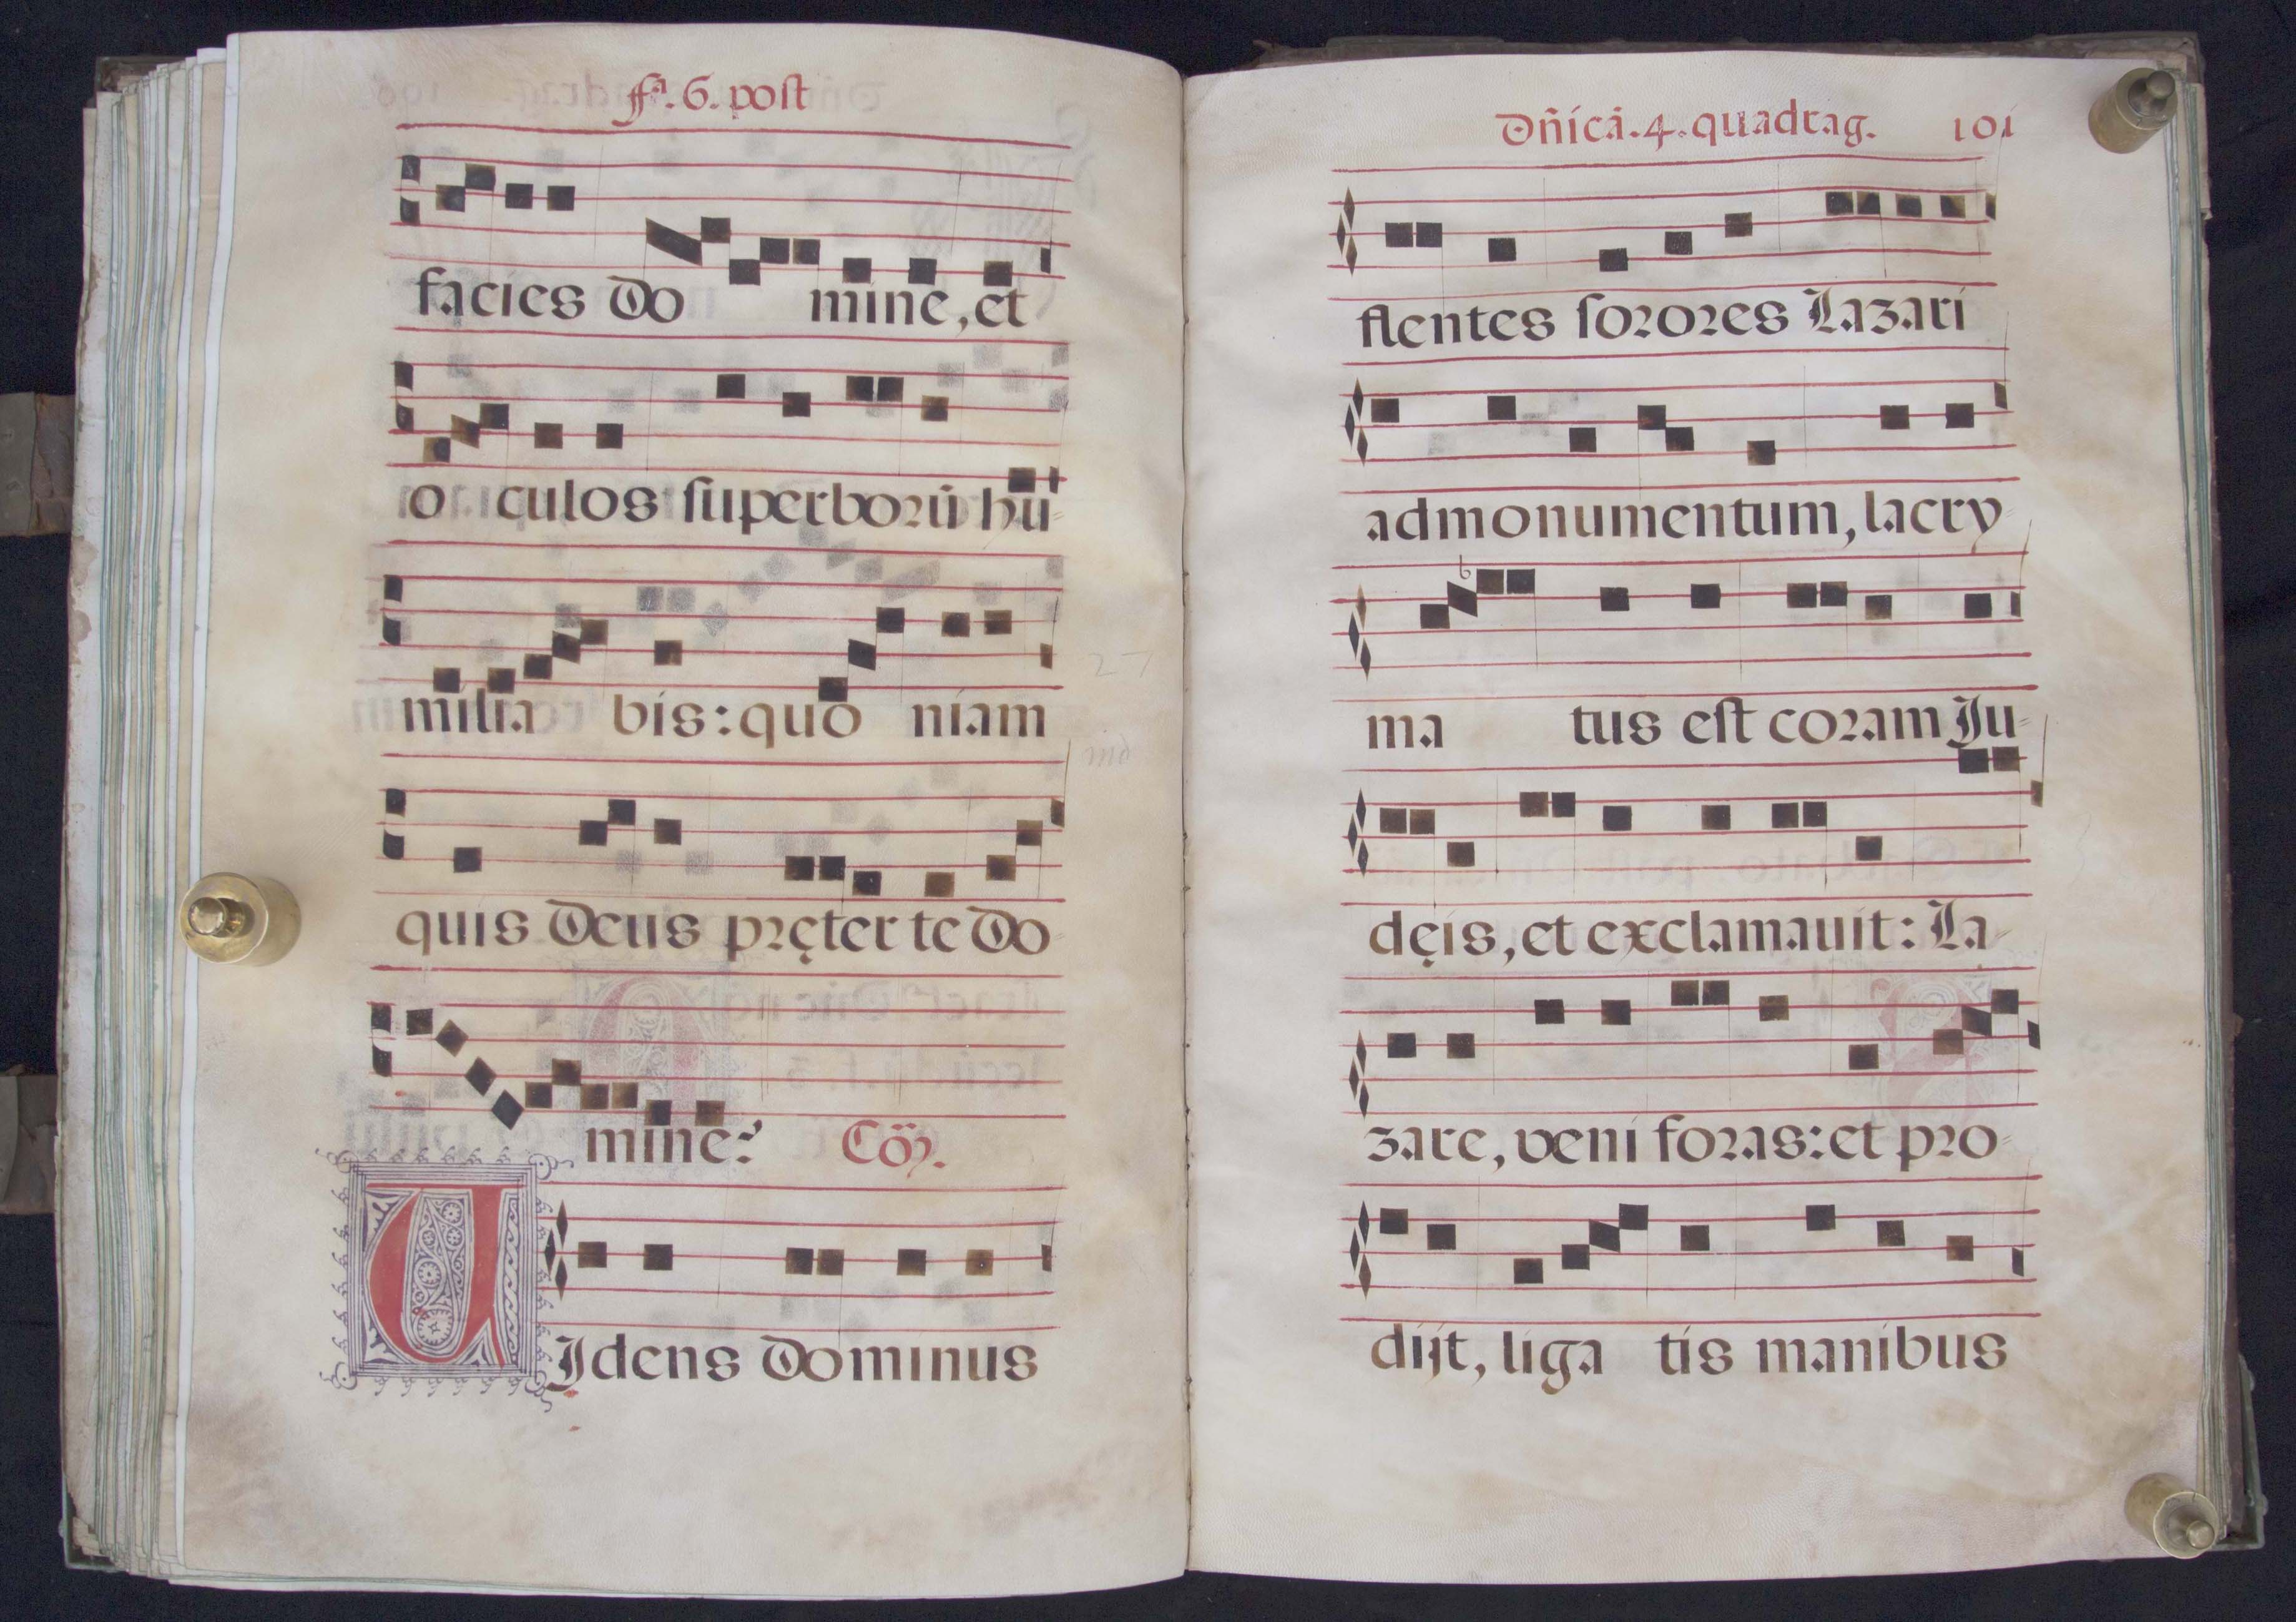 fᵃ. 6. poſt
facies Do mine, et
o culos ſuperborū hu-
milia bis: quo niam
quis Deus pręter te Do-
mine? Cōȝ.
VJdens Dominus
Dn̄icā. 4. quadrag. 101
flentes ſorores Lazari
ad monumentum, lacry-
ma tus eſt coram Ju-
dęis, et exclamauit: La-
zare, veni foras: et pro-
dijt, liga tis manibus